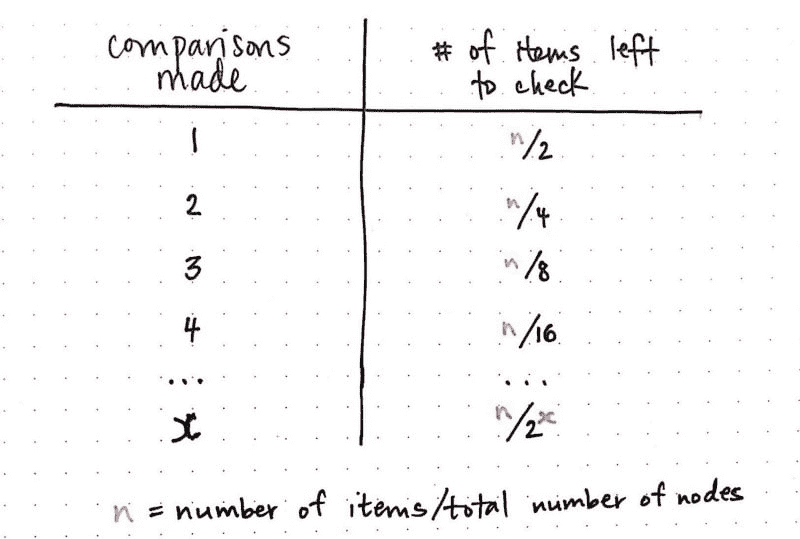 comparisons made
# of items left to check
1 n/2
2 n/4
3 n/8
4 n/16
... ...
x n/2^x
n = number of items/total number of nodes